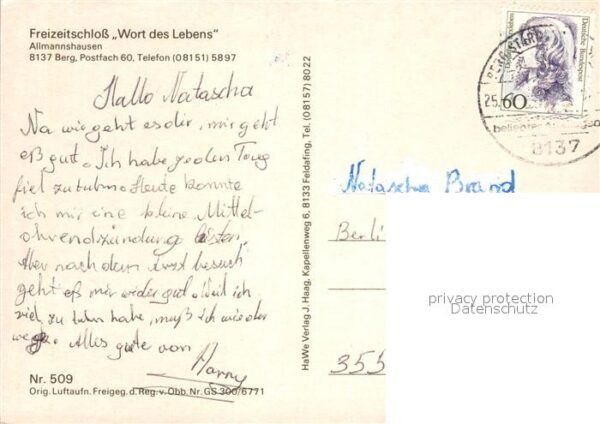 Freizeitschloß „Wort des Lebens"
Allmannshausen
8137 Berg, Postfach 60, Telefon (08151) 5897
Hallo Natascha
Na wie geht es dir, mir geht
eß gut. Ich habe jeden Tag
fiel zu tuhn. Heute konnte
ich mir eine kleine Mittel-
ohrendzündung leisten.
Aber nach dem Arzt besuch
geht eß mir wider gut. Weil ich
viel zu tuhn habe, muß ich wieder
weg. Alles gute von
Nr. 509
Orig. Luftaufn. Freigeg. d. Reg. v. Obb. Nr. GS 300/6771
HaWe Verlag J. Haag, Kapellenweg 6, 8133 Feldafing, Tel. (08157) 8022
Deutsche Bundespost
60
25.
8137
Natascha Brand
Berli
355
privacy protection
Datenschutz